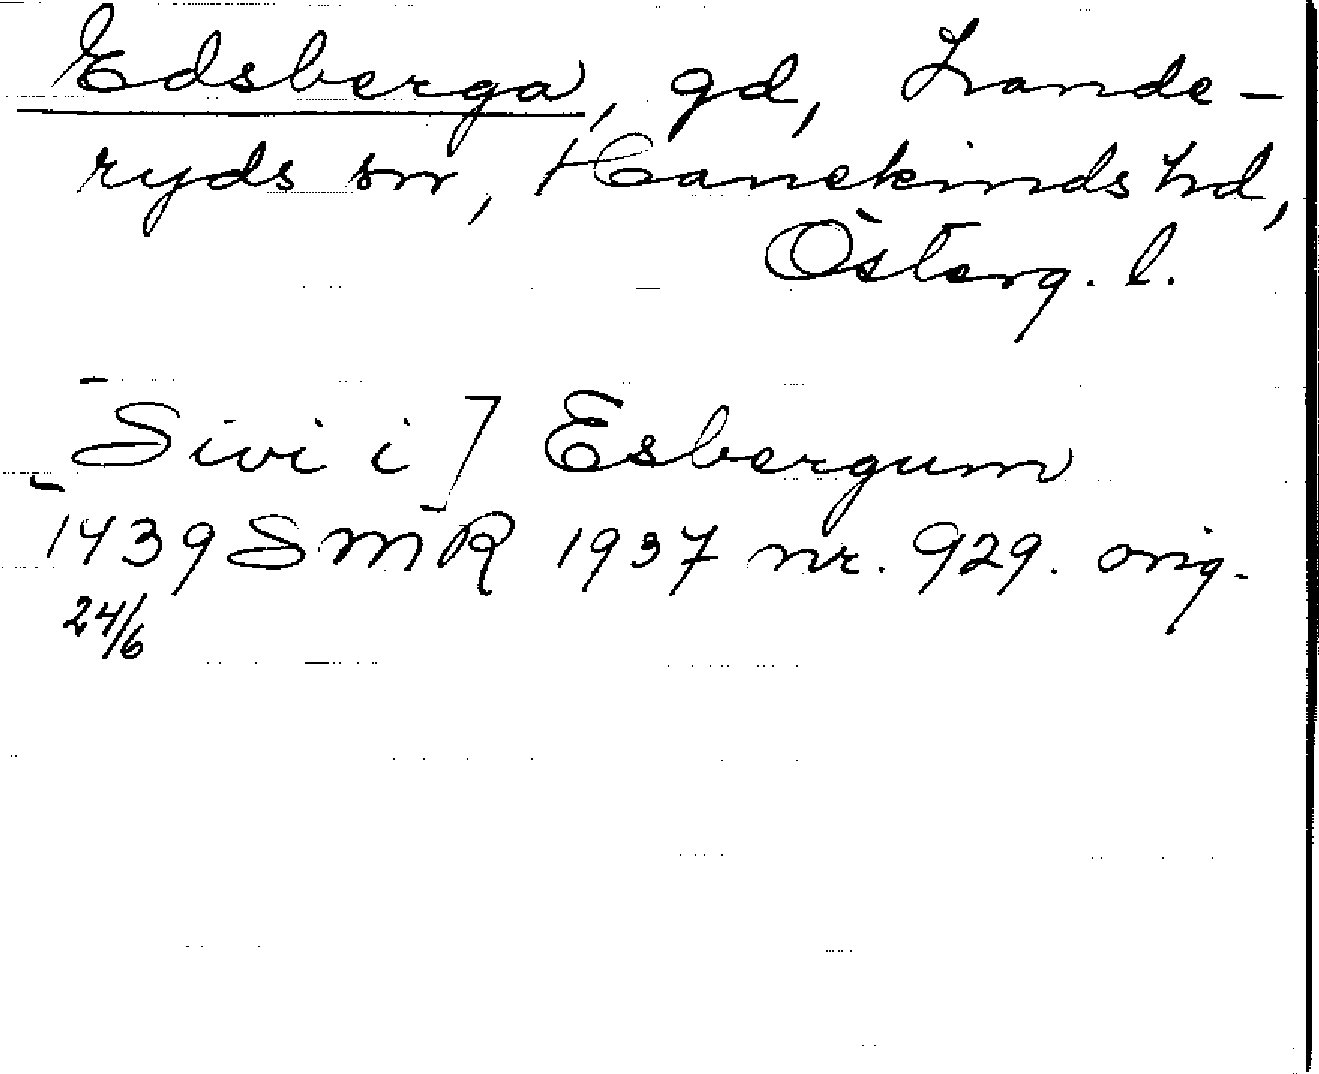 Edsberga, gd, Lande-
ryds sn, Hanekinds hd,
Österg. l.
[Sivi i] Esbergum
1439 SMR 1937 nr. 929. orig.
24/6